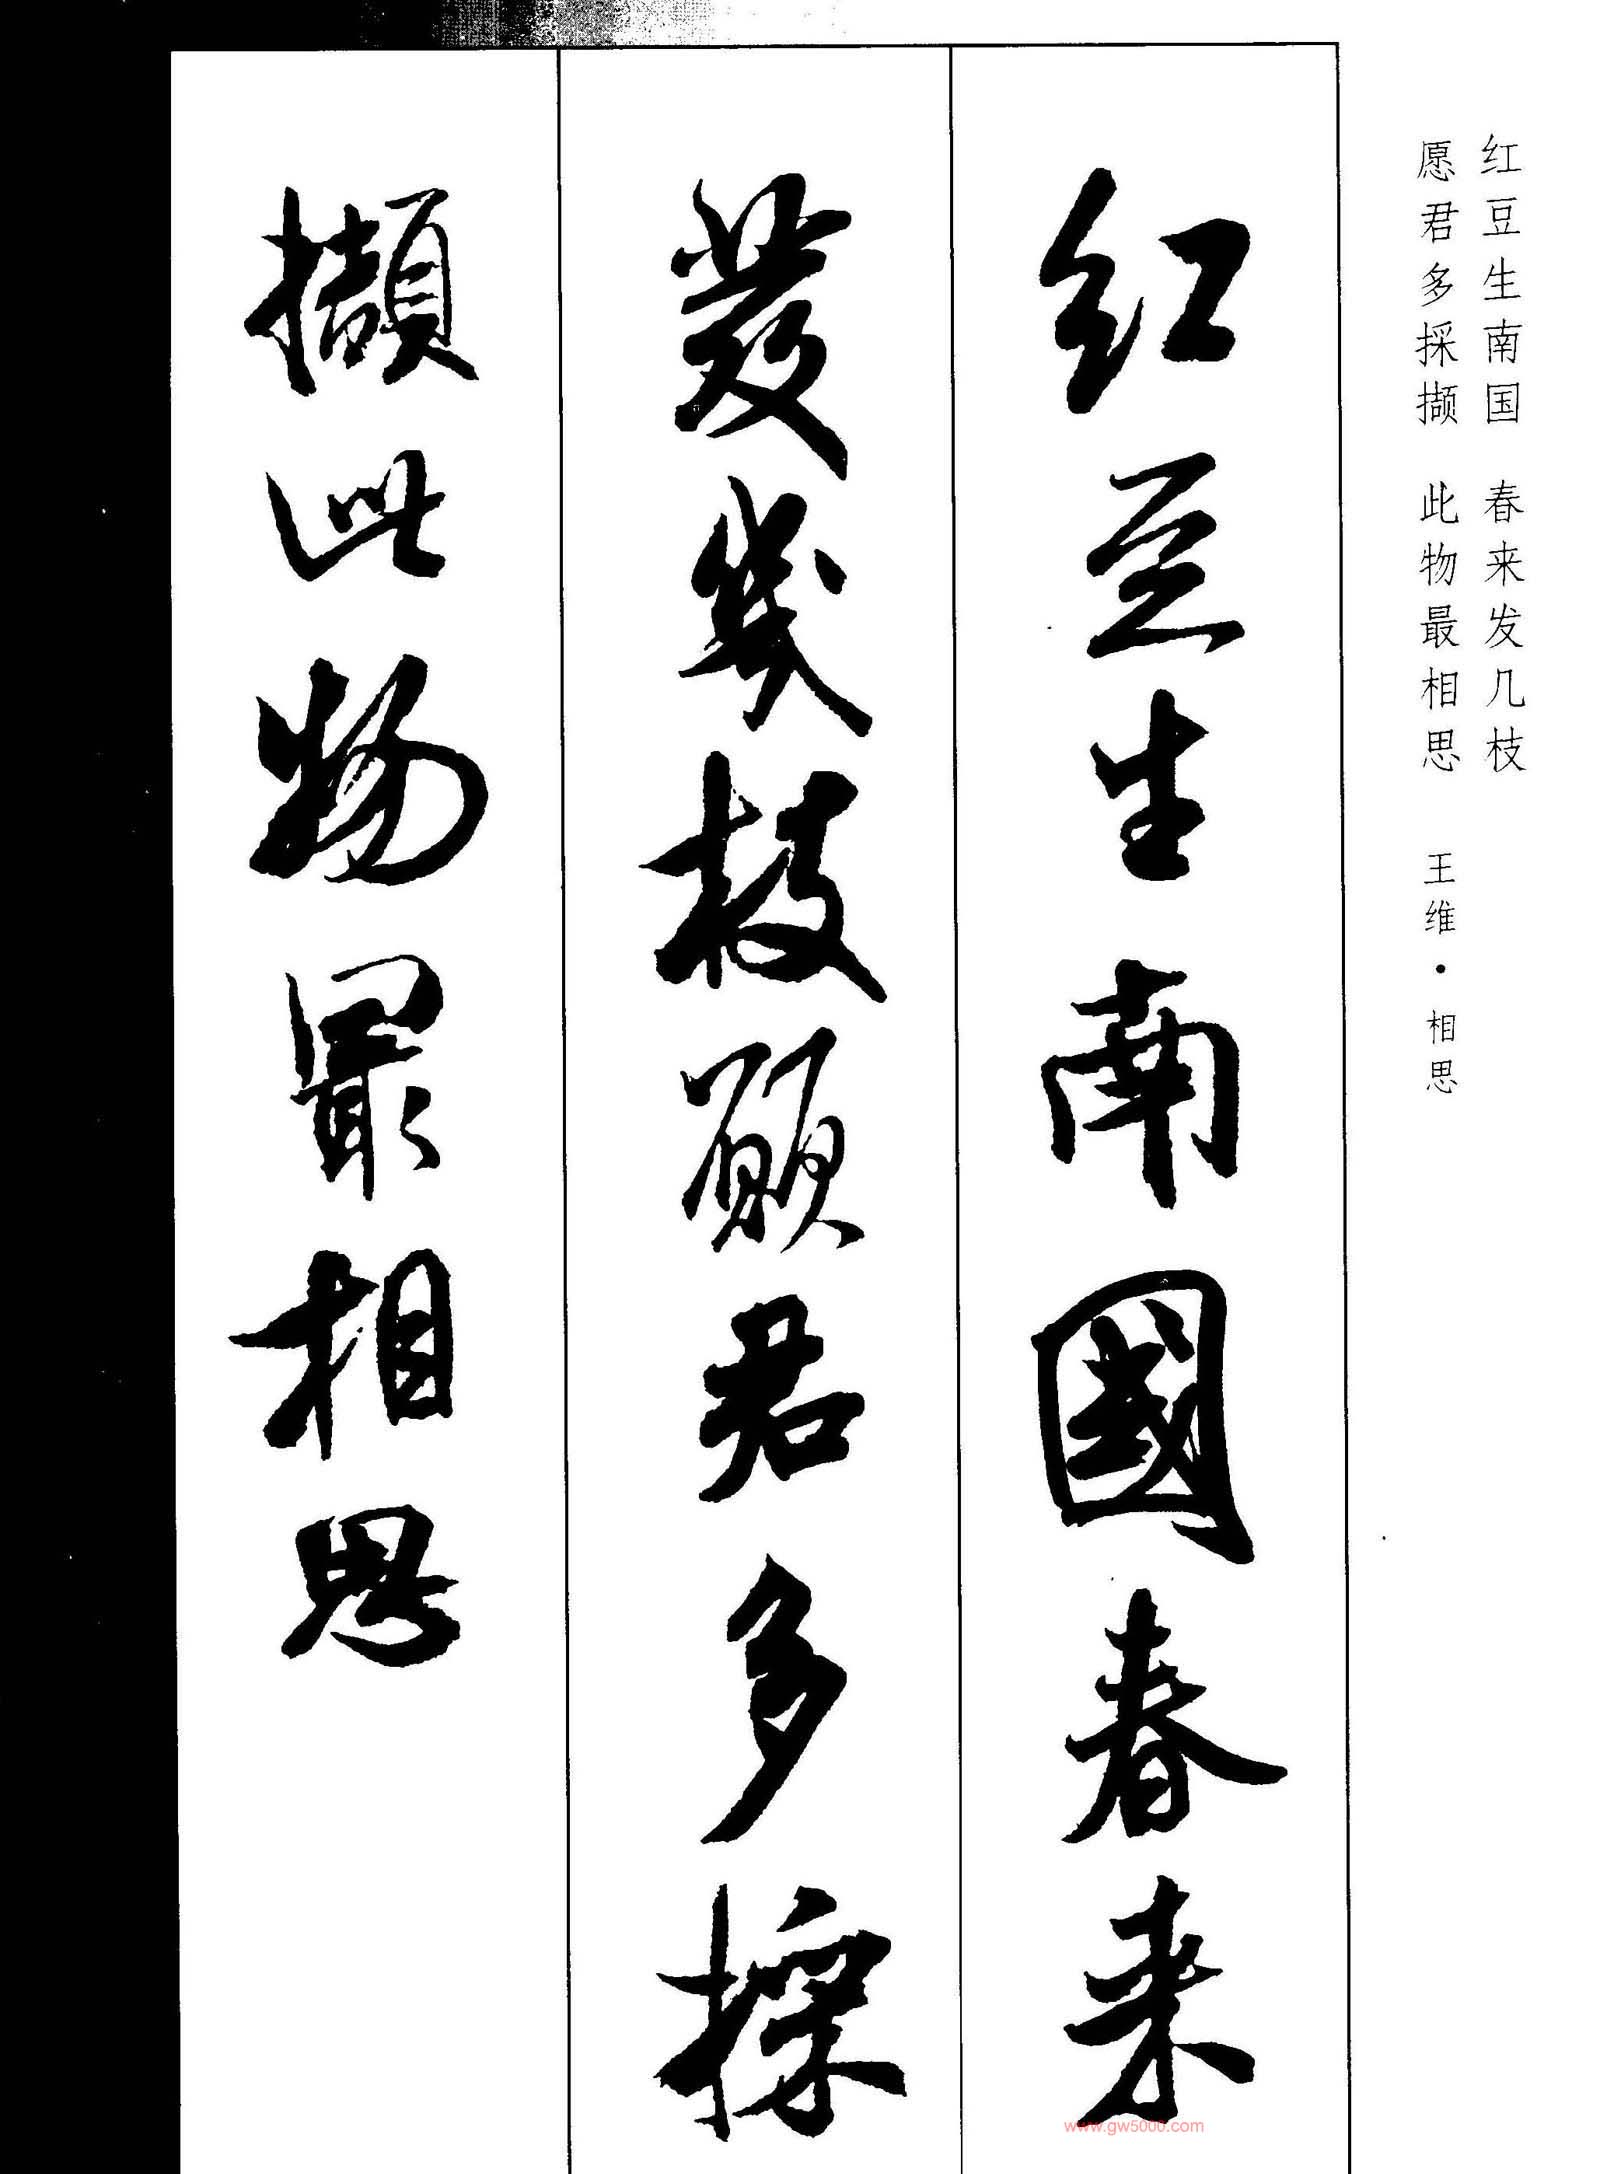 红豆生南国 春来发几枝
愿君多採撷 此物最相思 王维·相思
红豆生南國春来
發幾枝願君多採
擷此物最相思
www.gw5000.com